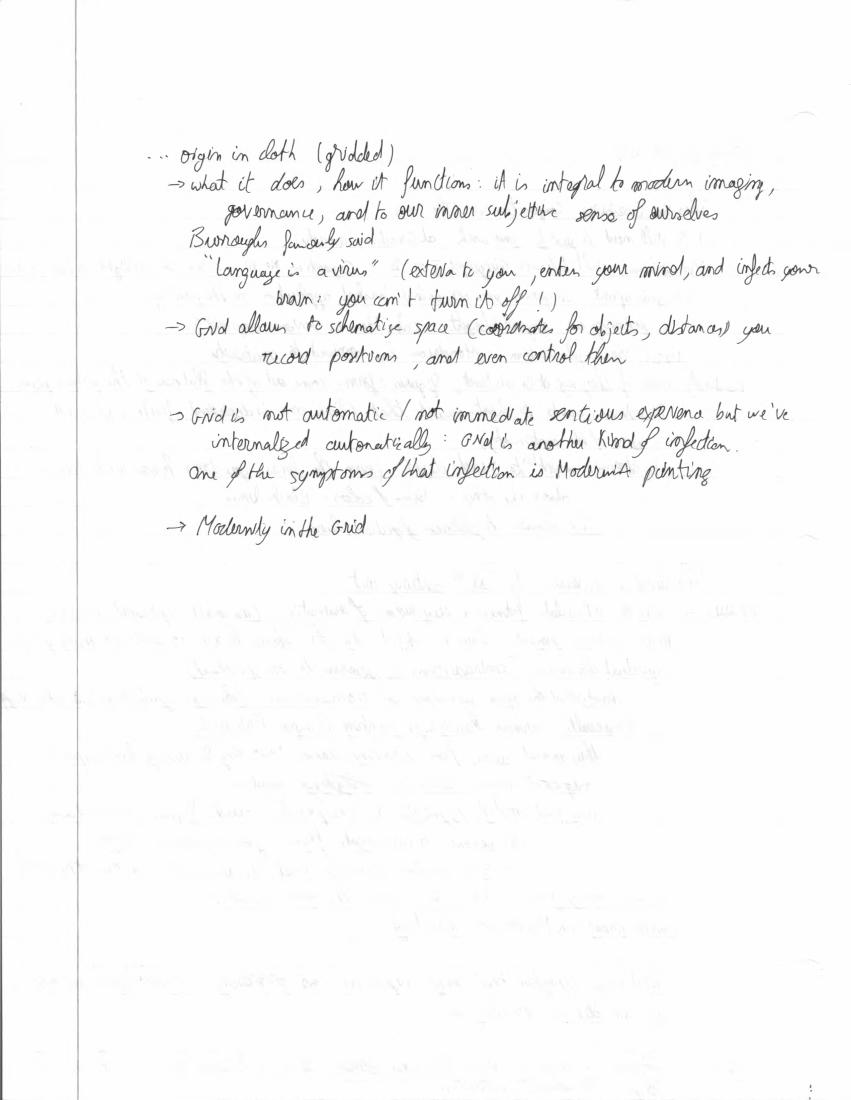 ... origin in cloth (gridded)
→ what it does, how it functions: it is integral to modern imaging,
governance, and to our inner subjective sense of ourselves
Burroughs famously said
"Language is a virus" (external to you, enter your mind, and infects your
brain: you can't turn it off!)
→ Grid allows to schematize space (coordinates for objects, distances) you
record positions, and even control them
→ Grid is not automatic / not immediate sentious experience but we've
internalized automatically: Grid is another kind of infection.
One of the symptoms of that infection is Modernist painting
→ Modernity in the Grid